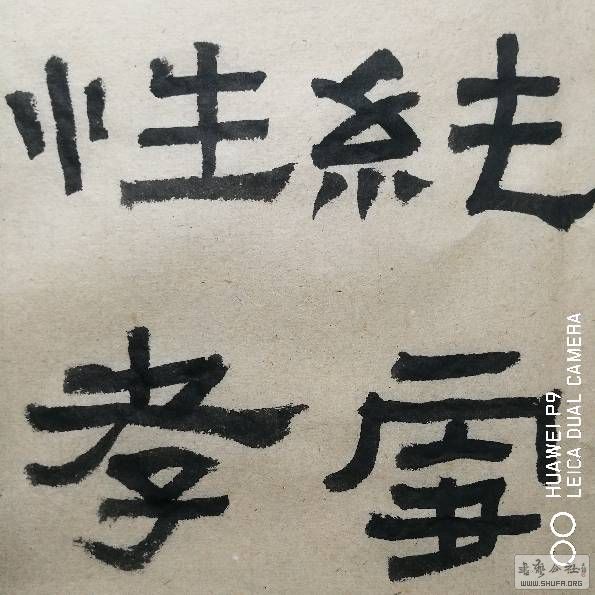 純
性孝
HUAWEI P9
LEICA DUAL CAMERA
書藝公社
WWW.SHUFA.ORG